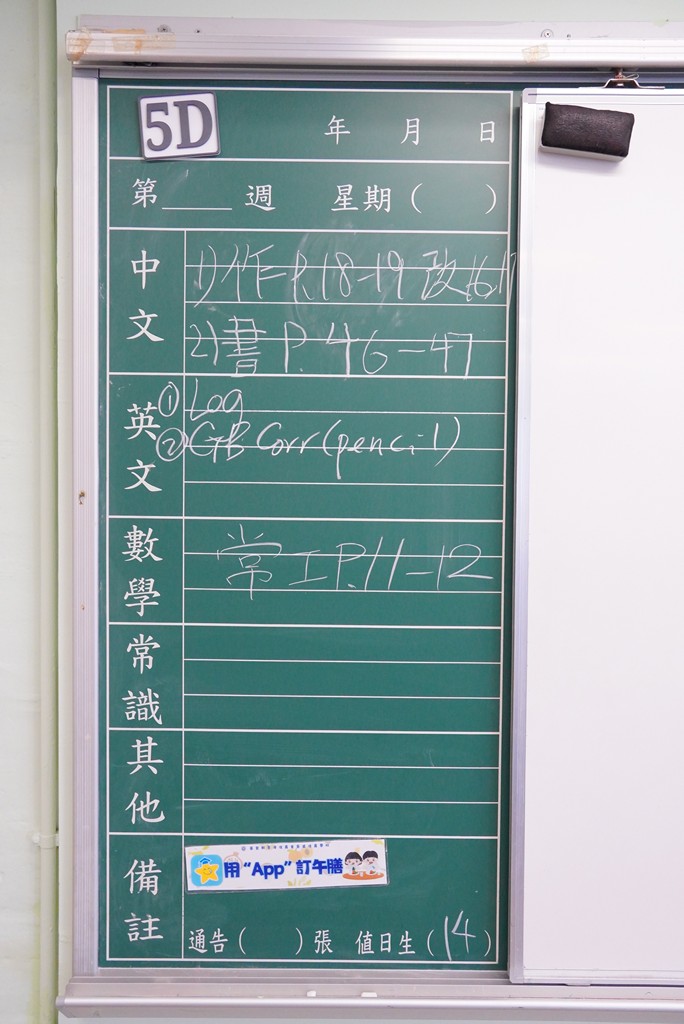 5D
年 月 日
第____週 星期( )
中文
1)作 P.18-19 改16,17
2)書 P.46-47
英文
① Log
② GB Corr (pencil)
數學
常 工 P.11-12
常識
其他
備註
用“App”訂午膳
通告( )張 值日生(14)